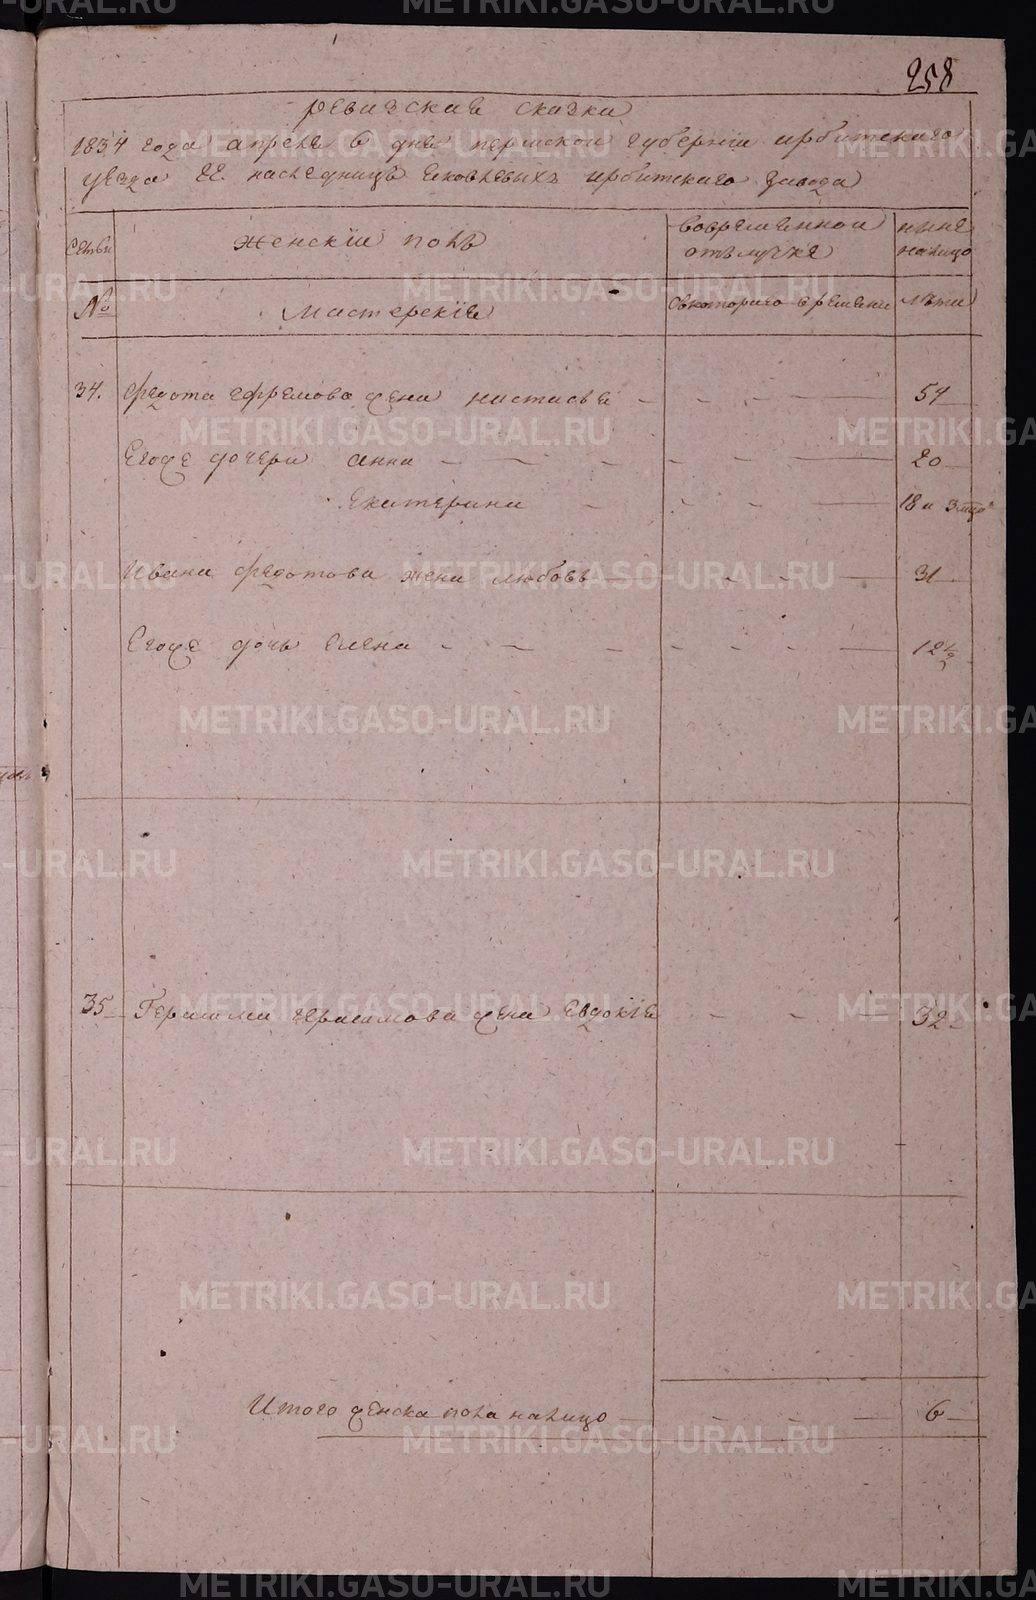 258
ревизские сказки
1834 года апреля 6 дня пермской губернии ирбитского
уезда гг. наследницъ яковлевыхъ ирбитского завода
семьи
женскій полъ
вовременной
отълучке
ныне
налицо
№
мастерскіе
скоторого времени
лѣта
34. федота ефремова жена настасья - - - - 54
Егоже дочери анна - - - - 20
екатерина - - - - 18 и 3 мца
Ивана федотова жена любовь - - - - 31
Егоже дочь елена - - - - 12½
35 Герасима герасимова жена евдокія - - - - 32
Итого женска пола налицо - - - - 6
METRIKI.GASO-URAL.RU